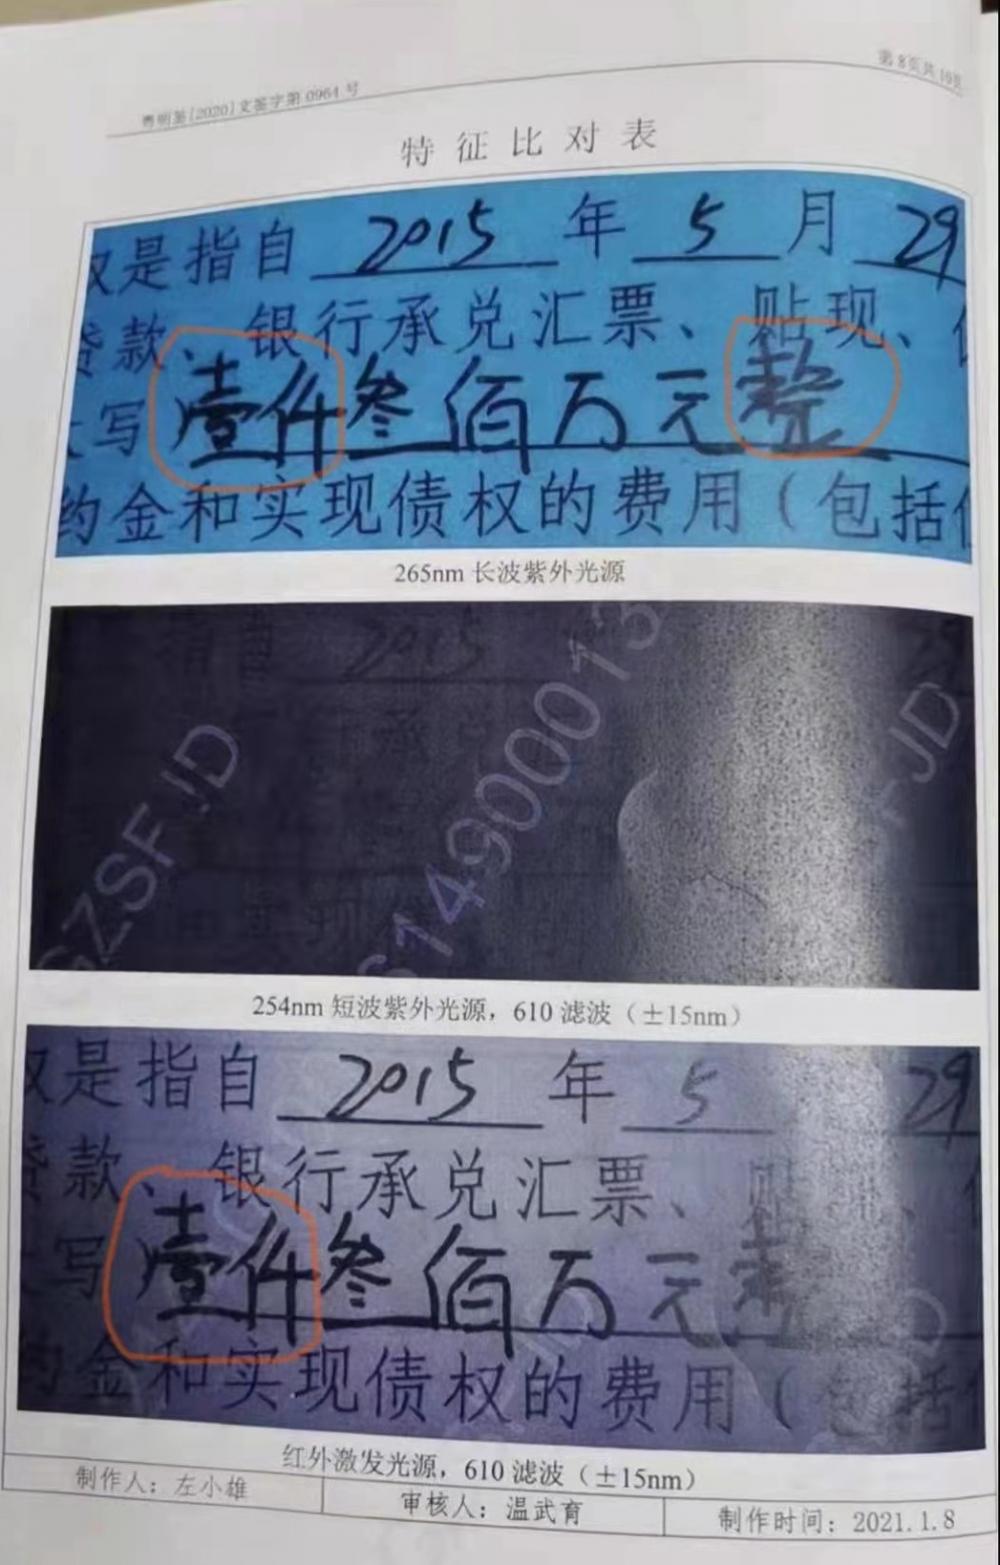 粤明鉴[2020]文鉴字第0964号
第8页共10页
特征比对表
是指自 2015 年 5 月 29
贷款、银行承兑汇票、贴现、
写 壹仟叁佰万元整
约金和实现债权的费用(包括
265nm 长波紫外光源
指自 2015
承兑
实现
GZSFJD
614900013
JD
254nm 短波紫外光源，610 滤波（±15nm）
是指自 2015 年 5 29
贷款、银行承兑汇票、贴
写 壹仟叁佰万元整
金和实现债权的费用(包括
红外激发光源，610 滤波（±15nm）
制作人：左小雄
审核人：温武育
制作时间：2021.1.8